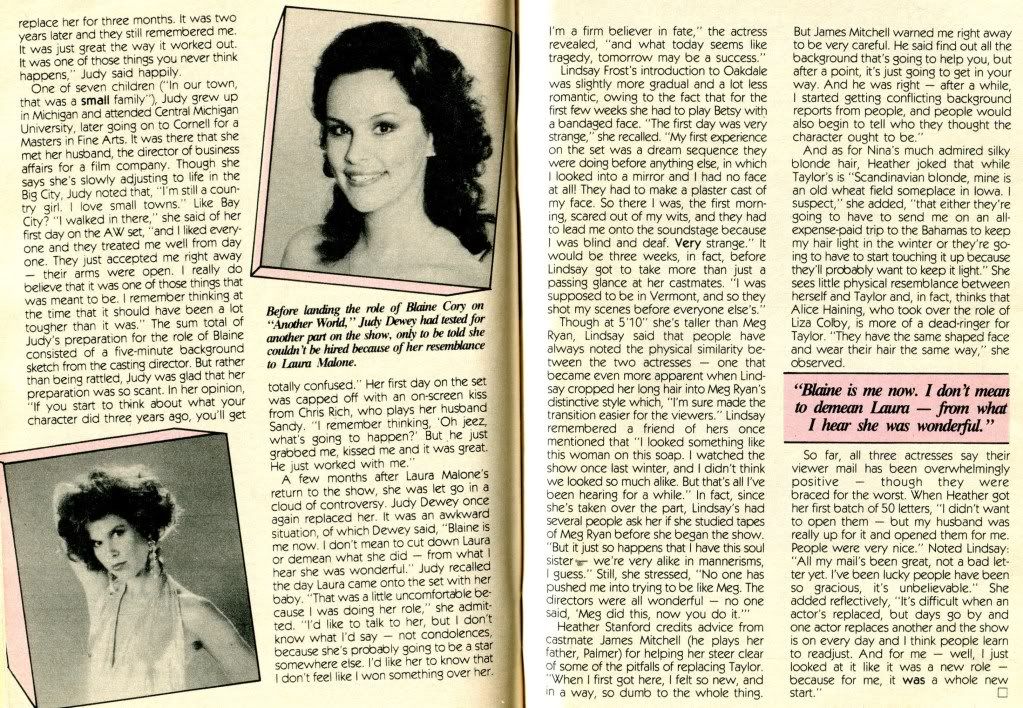 replace her for three months. It was two
years later and they still remembered me.
It was just great the way it worked out.
It was one of those things you never think
happens," Judy said happily.
One of seven children ("In our town,
that was a small family"), Judy grew up
in Michigan and attended Central Michigan
University, later going on to Cornell for a
Masters in Fine Arts. It was there that she
met her husband, the director of business
affairs for a film company. Though she
says she's slowly adjusting to life in the
Big City, Judy noted that, "I'm still a coun-
try girl. I love small towns." Like Bay
City? "I walked in there," she said of her
first day on the AW set, "and I liked every-
one and they treated me well from day
one. They just accepted me right away
— their arms were open. I really do
believe that it was one of those things that
was meant to be. I remember thinking at
the time that it should have been a lot
tougher than it was." The sum total of
Judy's preparation for the role of Blaine
consisted of a five-minute background
sketch from the casting director. But rather
than being rattled, Judy was glad that her
preparation was so scant. In her opinion,
"If you start to think about what your
character did three years ago, you'll get
Before landing the role of Blaine Cory on
"Another World," Judy Dewey had tested for
another part on the show, only to be told she
couldn't be hired because of her resemblance
to Laura Malone.
totally confused." Her first day on the set
was capped off with an on-screen kiss
from Chris Rich, who plays her husband
Sandy. "I remember thinking, 'Oh jeez,
what's going to happen?' But he just
grabbed me, kissed me and it was great.
He just worked with me."
A few months after Laura Malone's
return to the show, she was let go in a
cloud of controversy. Judy Dewey once
again replaced her. It was an awkward
situation, of which Dewey said, "Blaine is
me now. I don't mean to cut down Laura
or demean what she did — from what I
hear she was wonderful." Judy recalled
the day Laura came onto the set with her
baby. "That was a little uncomfortable be-
cause I was doing her role," she admit-
ted. "I'd like to talk to her, but I don't
know what I'd say — not condolences,
because she's probably going to be a star
somewhere else. I'd like her to know that
I don't feel like I won something over her.
I'm a firm believer in fate," the actress
revealed, "and what today seems like
tragedy, tomorrow may be a success."
Lindsay Frost's introduction to Oakdale
was slightly more gradual and a lot less
romantic, owing to the fact that for the
first few weeks she had to play Betsy with
a bandaged face. "The first day was very
strange," she recalled. "My first experience
on the set was a dream sequence they
were doing before anything else, in which
I looked into a mirror and I had no face
at all! They had to make a plaster cast of
my face. So there I was, the first morn-
ing, scared out of my wits, and they had
to lead me onto the soundstage because
I was blind and deaf. Very strange." It
would be three weeks, in fact, before
Lindsay got to take more than just a
passing glance at her castmates. "I was
supposed to be in Vermont, and so they
shot my scenes before everyone else's."
Though at 5'10" she's taller than Meg
Ryan, Lindsay said that people have
always noted the physical similarity be-
tween the two actresses — one that
became even more apparent when Lind-
say cropped her long hair into Meg Ryan's
distinctive style which, "I'm sure made the
transition easier for the viewers." Lindsay
remembered a friend of hers once
mentioned that "I looked something like
this woman on this soap. I watched the
show once last winter, and I didn't think
we looked so much alike. But that's all I've
been hearing for a while." In fact, since
she's taken over the part, Lindsay's had
several people ask her if she studied tapes
of Meg Ryan before she began the show.
"But it just so happens that I have this soul
sister — we're very alike in mannerisms,
I guess." Still, she stressed, "No one has
pushed me into trying to be like Meg. The
directors were all wonderful — no one
said, 'Meg did this, now you do it.'"
Heather Stanford credits advice from
castmate James Mitchell (he plays her
father, Palmer) for helping her steer clear
of some of the pitfalls of replacing Taylor.
"When I first got here, I felt so new, and
in a way, so dumb to the whole thing.
But James Mitchell warned me right away
to be very careful. He said find out all the
background that's going to help you, but
after a point, it's just going to get in your
way. And he was right — after a while,
I started getting conflicting background
reports from people, and people would
also begin to tell who they thought the
character ought to be."
And as for Nina's much admired silky
blonde hair, Heather joked that while
Taylor's is "Scandinavian blonde, mine is
an old wheat field someplace in Iowa. I
suspect," she added, "that either they're
going to have to send me on an all-
expense-paid trip to the Bahamas to keep
my hair light in the winter or they're go-
ing to have to start touching it up because
they'll probably want to keep it light." She
sees little physical resemblance between
herself and Taylor and, in fact, thinks that
Alice Haining, who took over the role of
Liza Colby, is more of a dead-ringer for
Taylor. "They have the same shaped face
and wear their hair the same way," she
observed.
"Blaine is me now. I don't mean
to demean Laura — from what
I hear she was wonderful."
So far, all three actresses say their
viewer mail has been overwhelmingly
positive — though they were
braced for the worst. When Heather got
her first batch of 50 letters, "I didn't want
to open them — but my husband was
really up for it and opened them for me.
People were very nice." Noted Lindsay:
"All my mail's been great, not a bad let-
ter yet. I've been lucky people have been
so gracious, it's unbelievable." She
added reflectively, "It's difficult when an
actor's replaced, but days go by and
one actor replaces another and the show
is on every day and I think people learn
to readjust. And for me — well, I just
looked at it like it was a new role —
because for me, it was a whole new
start."